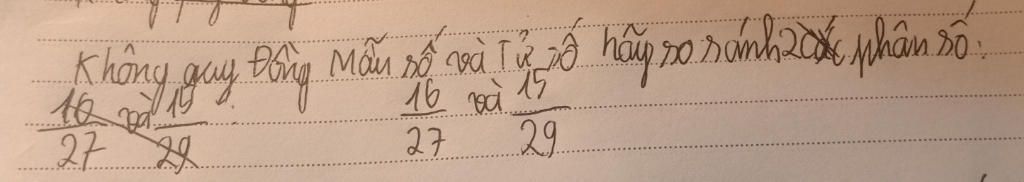 Không quy Đồng Mẫu số và Tử số hãy so sánh 2 phân số:
16/27 và 15/29 16/27 và 15/29